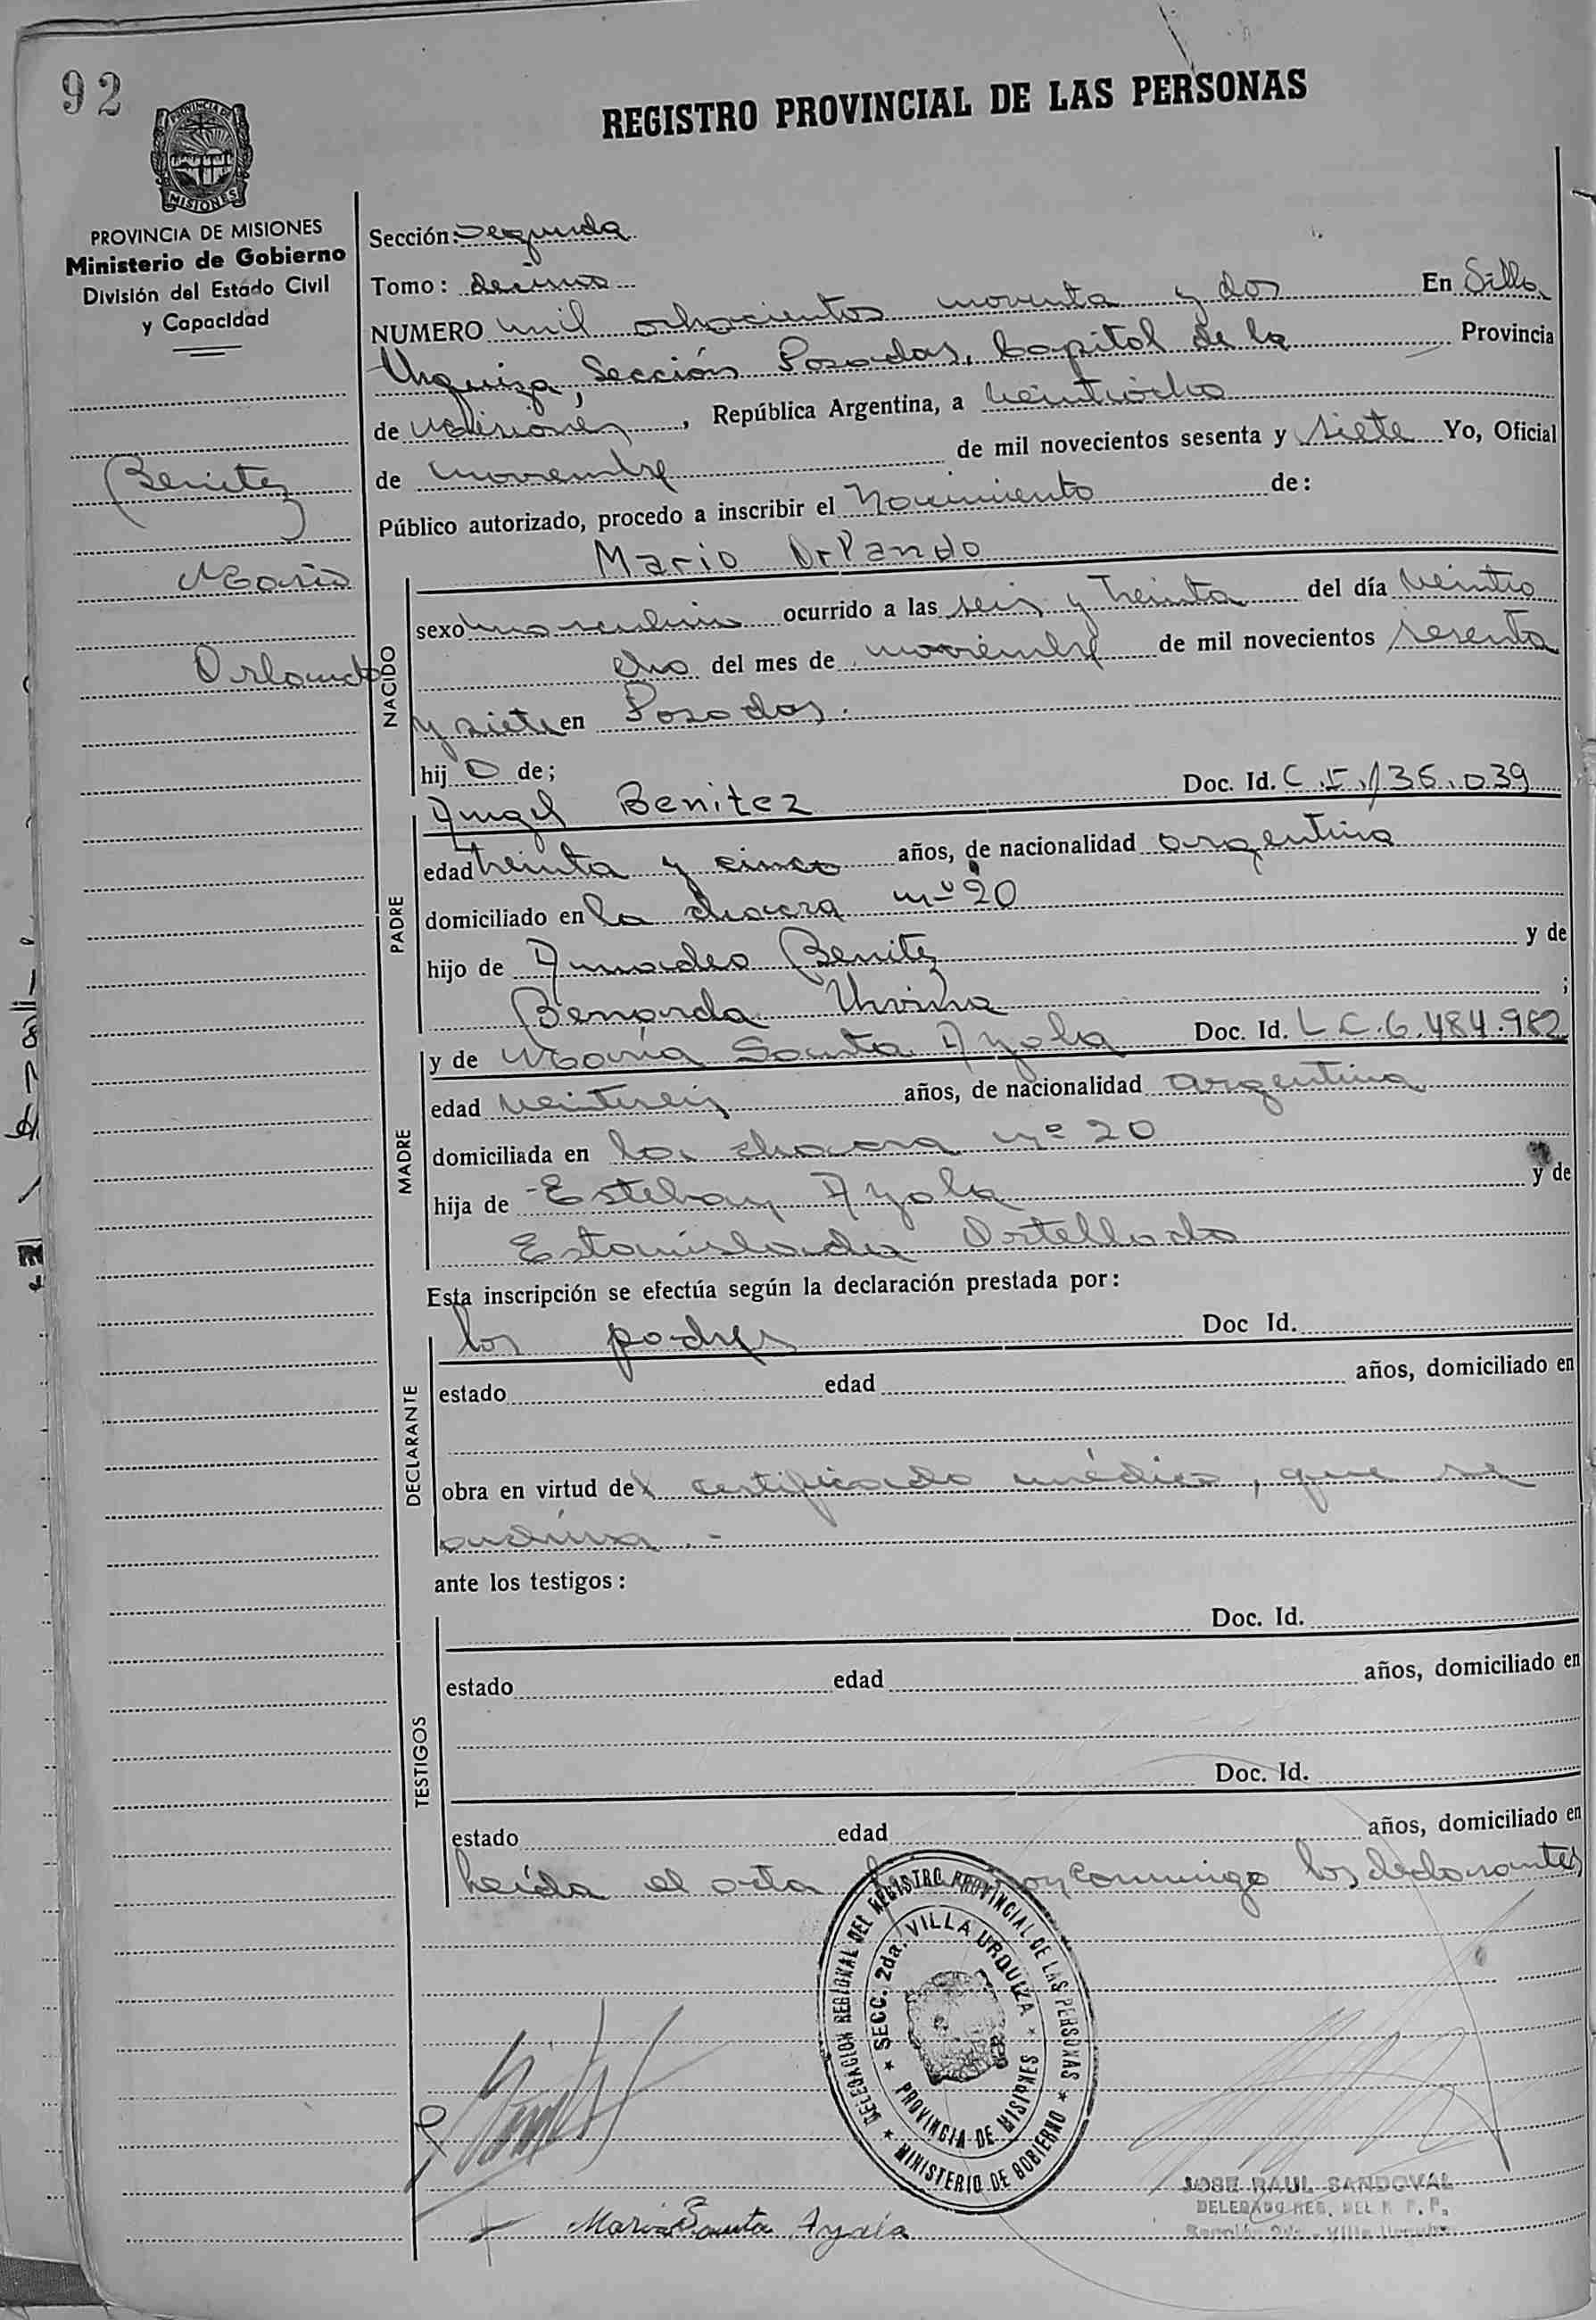 92
REGISTRO PROVINCIAL DE LAS PERSONAS
PROVINCIA DE MISIONES
Ministerio de Gobierno
División del Estado Civil
y Capacidad
Benitez
Mario
Orlando
Sección: Segunda
Tomo: decimo
NUMERO mil ochocientos noventa y dos En Villa
Urquiza, Sección Posadas, Capital de la Provincia
de Misiones, República Argentina, a veintiocho
de noviembre de mil novecientos sesenta y siete Yo, Oficial
Público autorizado, procedo a inscribir el Nacimiento de:
Mario Orlando
NACIDO
sexo masculino ocurrido a las seis y treinta del día veintio
cho del mes de noviembre de mil novecientos sesenta
y siete en Posadas.
hijo de;
PADRE
Angel Benitez Doc. Id. C.I. 136.039
edad treinta y cinco años, de nacionalidad argentina
domiciliado en la chacra nº 20
hijo de Amadeo Benitez y de
Benarda ;
MADRE
y de María Santa Ayala Doc. Id. L.C. 6.484.982
edad veintiseis años, de nacionalidad argentina
domiciliada en la chacra nº 20
hija de Esteban Ayala y de
Estanislada Ortellado
Esta inscripción se efectúa según la declaración prestada por:
DECLARANTE
los padres Doc Id.
estado edad años, domiciliado en
obra en virtud del certificado médico, que se
archiva.-
ante los testigos:
TESTIGOS
Doc. Id.
estado edad años, domiciliado en
Doc. Id.
estado edad años, domiciliado en
Leída el acta conmigo los declarantes
DELEGACION REGIONAL DEL REGISTRO PROVINCIAL DE LAS PERSONAS
MINISTERIO DE GOBIERNO
SECC. 2da. VILLA URQUIZA
PROVINCIA DE MISIONES
Maria Santa Ayala
JOSE RAUL SANDOVAL
DELEGADO REG. DEL R. P. P.
Sección 2da. - Villa Urquiza